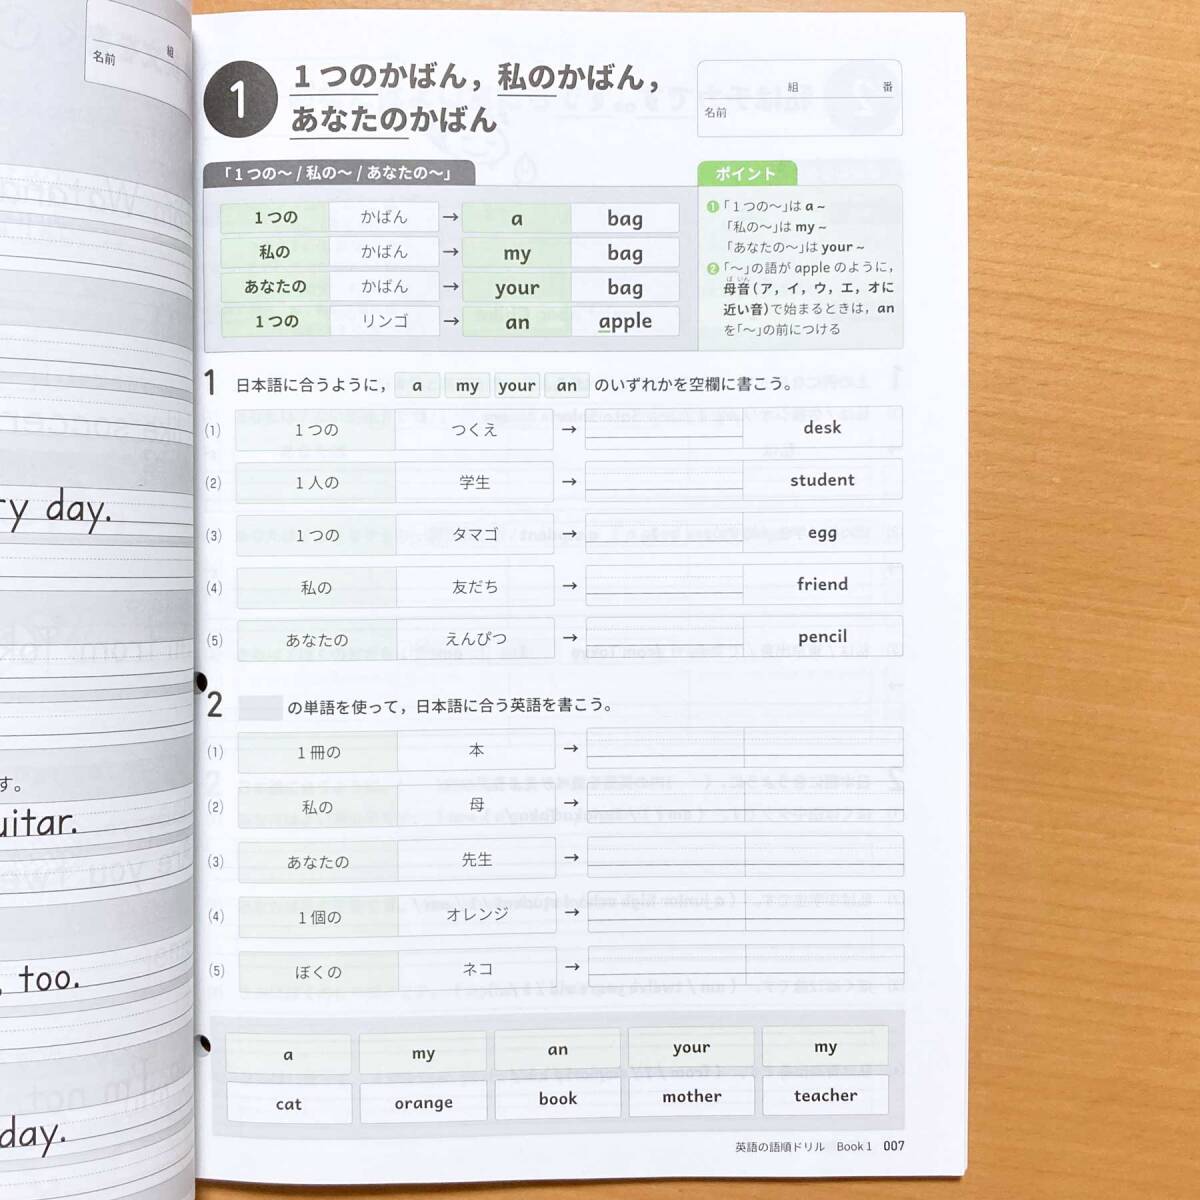 組
名前
ry day.
す。
uitar.
, too.
day.
1
1つのかばん，私のかばん，
あなたのかばん
組 番
名前
「1つの〜 / 私の〜 / あなたの〜」
1つの かばん → a bag
私の かばん → my bag
あなたの かばん → your bag
1つの リンゴ → an apple
ポイント
❶「1つの〜」は a ~
「私の〜」は my ~
「あなたの〜」は your ~
❷「〜」の語が apple のように，
ぼ いん
母音（ア，イ，ウ，エ，オに
近い音）で始まるときは，an
を「〜」の前につける
1 日本語に合うように， a my your an のいずれかを空欄に書こう。
(1) 1つの つくえ → desk
(2) 1人の 学生 → student
(3) 1つの タマゴ → egg
(4) 私の 友だち → friend
(5) あなたの えんぴつ → pencil
2 の単語を使って，日本語に合う英語を書こう。
(1) 1冊の 本 →
(2) 私の 母 →
(3) あなたの 先生 →
(4) 1個の オレンジ →
(5) ぼくの ネコ →
a my an your my
cat orange book mother teacher
英語の語順ドリル Book 1 007